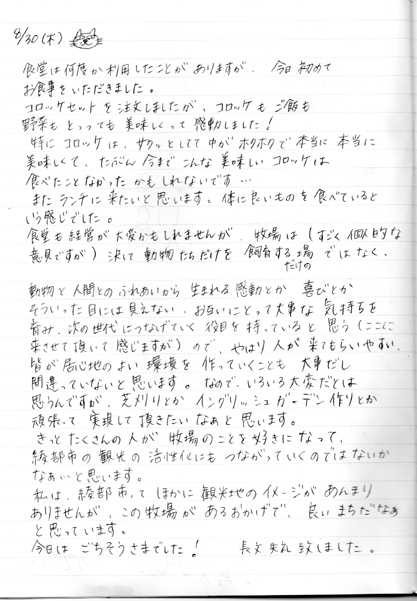 8/30(木)
食堂は何度か利用したことがありますが、今日初めて
お食事をいただきました。
コロッケセットを注文しましたが、コロッケもご飯も
野菜もとっっても美味しくって感動しました!
特にコロッケは、サクッとしてて中がホクホクで本当に本当に
美味しくて、たぶん今までこんな美味しいコロッケは
食べたことなかったかもしれないです…
またランチに来たいと思います。体に良いものを食べていると
いう感じでした。
食堂も経営が大変かもしれませんが、牧場は(すごく個人的な
意見ですが)決して動物たちだけを飼育する場ではなく、
だけの
動物と人間とのふれあいから生まれる感動とか喜びとか
そういった目には見えない、お互いにとって大事な気持ちを
育み、次の世代につなげていく役目を持っていると思う(ここに
来させて頂いて感じますが)ので、やはり人が来てもらいやすい、
皆が居心地のよい環境を作っていくことも大事だし
間違っていないと思います。なので、いろいろ大変だとは
思うんですが、芝刈りとかイングリッシュガーデン作りとか
頑張って実現して頂きたいなぁと思います。
きっとたくさんの人が牧場のことを好きになって、
綾部市の観光の活性化にもつながっていくのではないか
なぁ…と思います。
私は、綾部市ってほかに観光地のイメージがあんまり
ありませんが、この牧場があるおかげで、良いまちだなぁ
と思っています。
今日はごちそうさまでした! 長文失礼致しました。